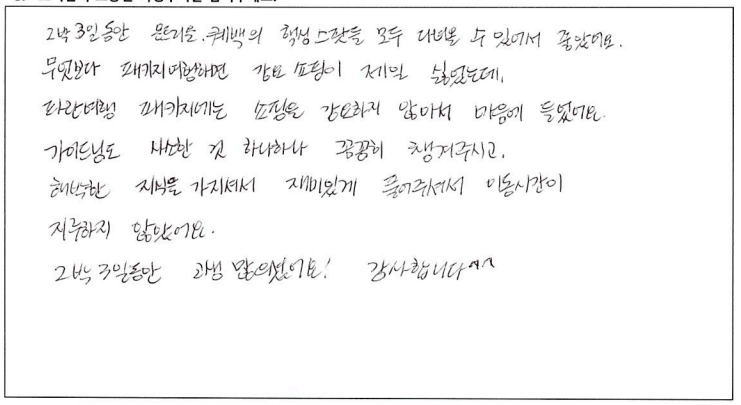 2박 3일동안 몬트리올.퀘백의 핵심스팟들 모두 다녀올 수 있어서 좋았어요.
무엇보다 패키지여행하면 강요 쇼핑이 제일 싫었는데,
파란여행 패키지에는 쇼핑을 강요하지 않아서 마음에 들었어요.
가이드님도 사소한 것 하나하나 꼼꼼히 챙겨주시고,
해박한 지식을 가지셔서 재미있게 풀어주셔서 이동시간이
지루하지 않았어요.
2박 3일동안 고생 많으셨어요! 감사합니다^^